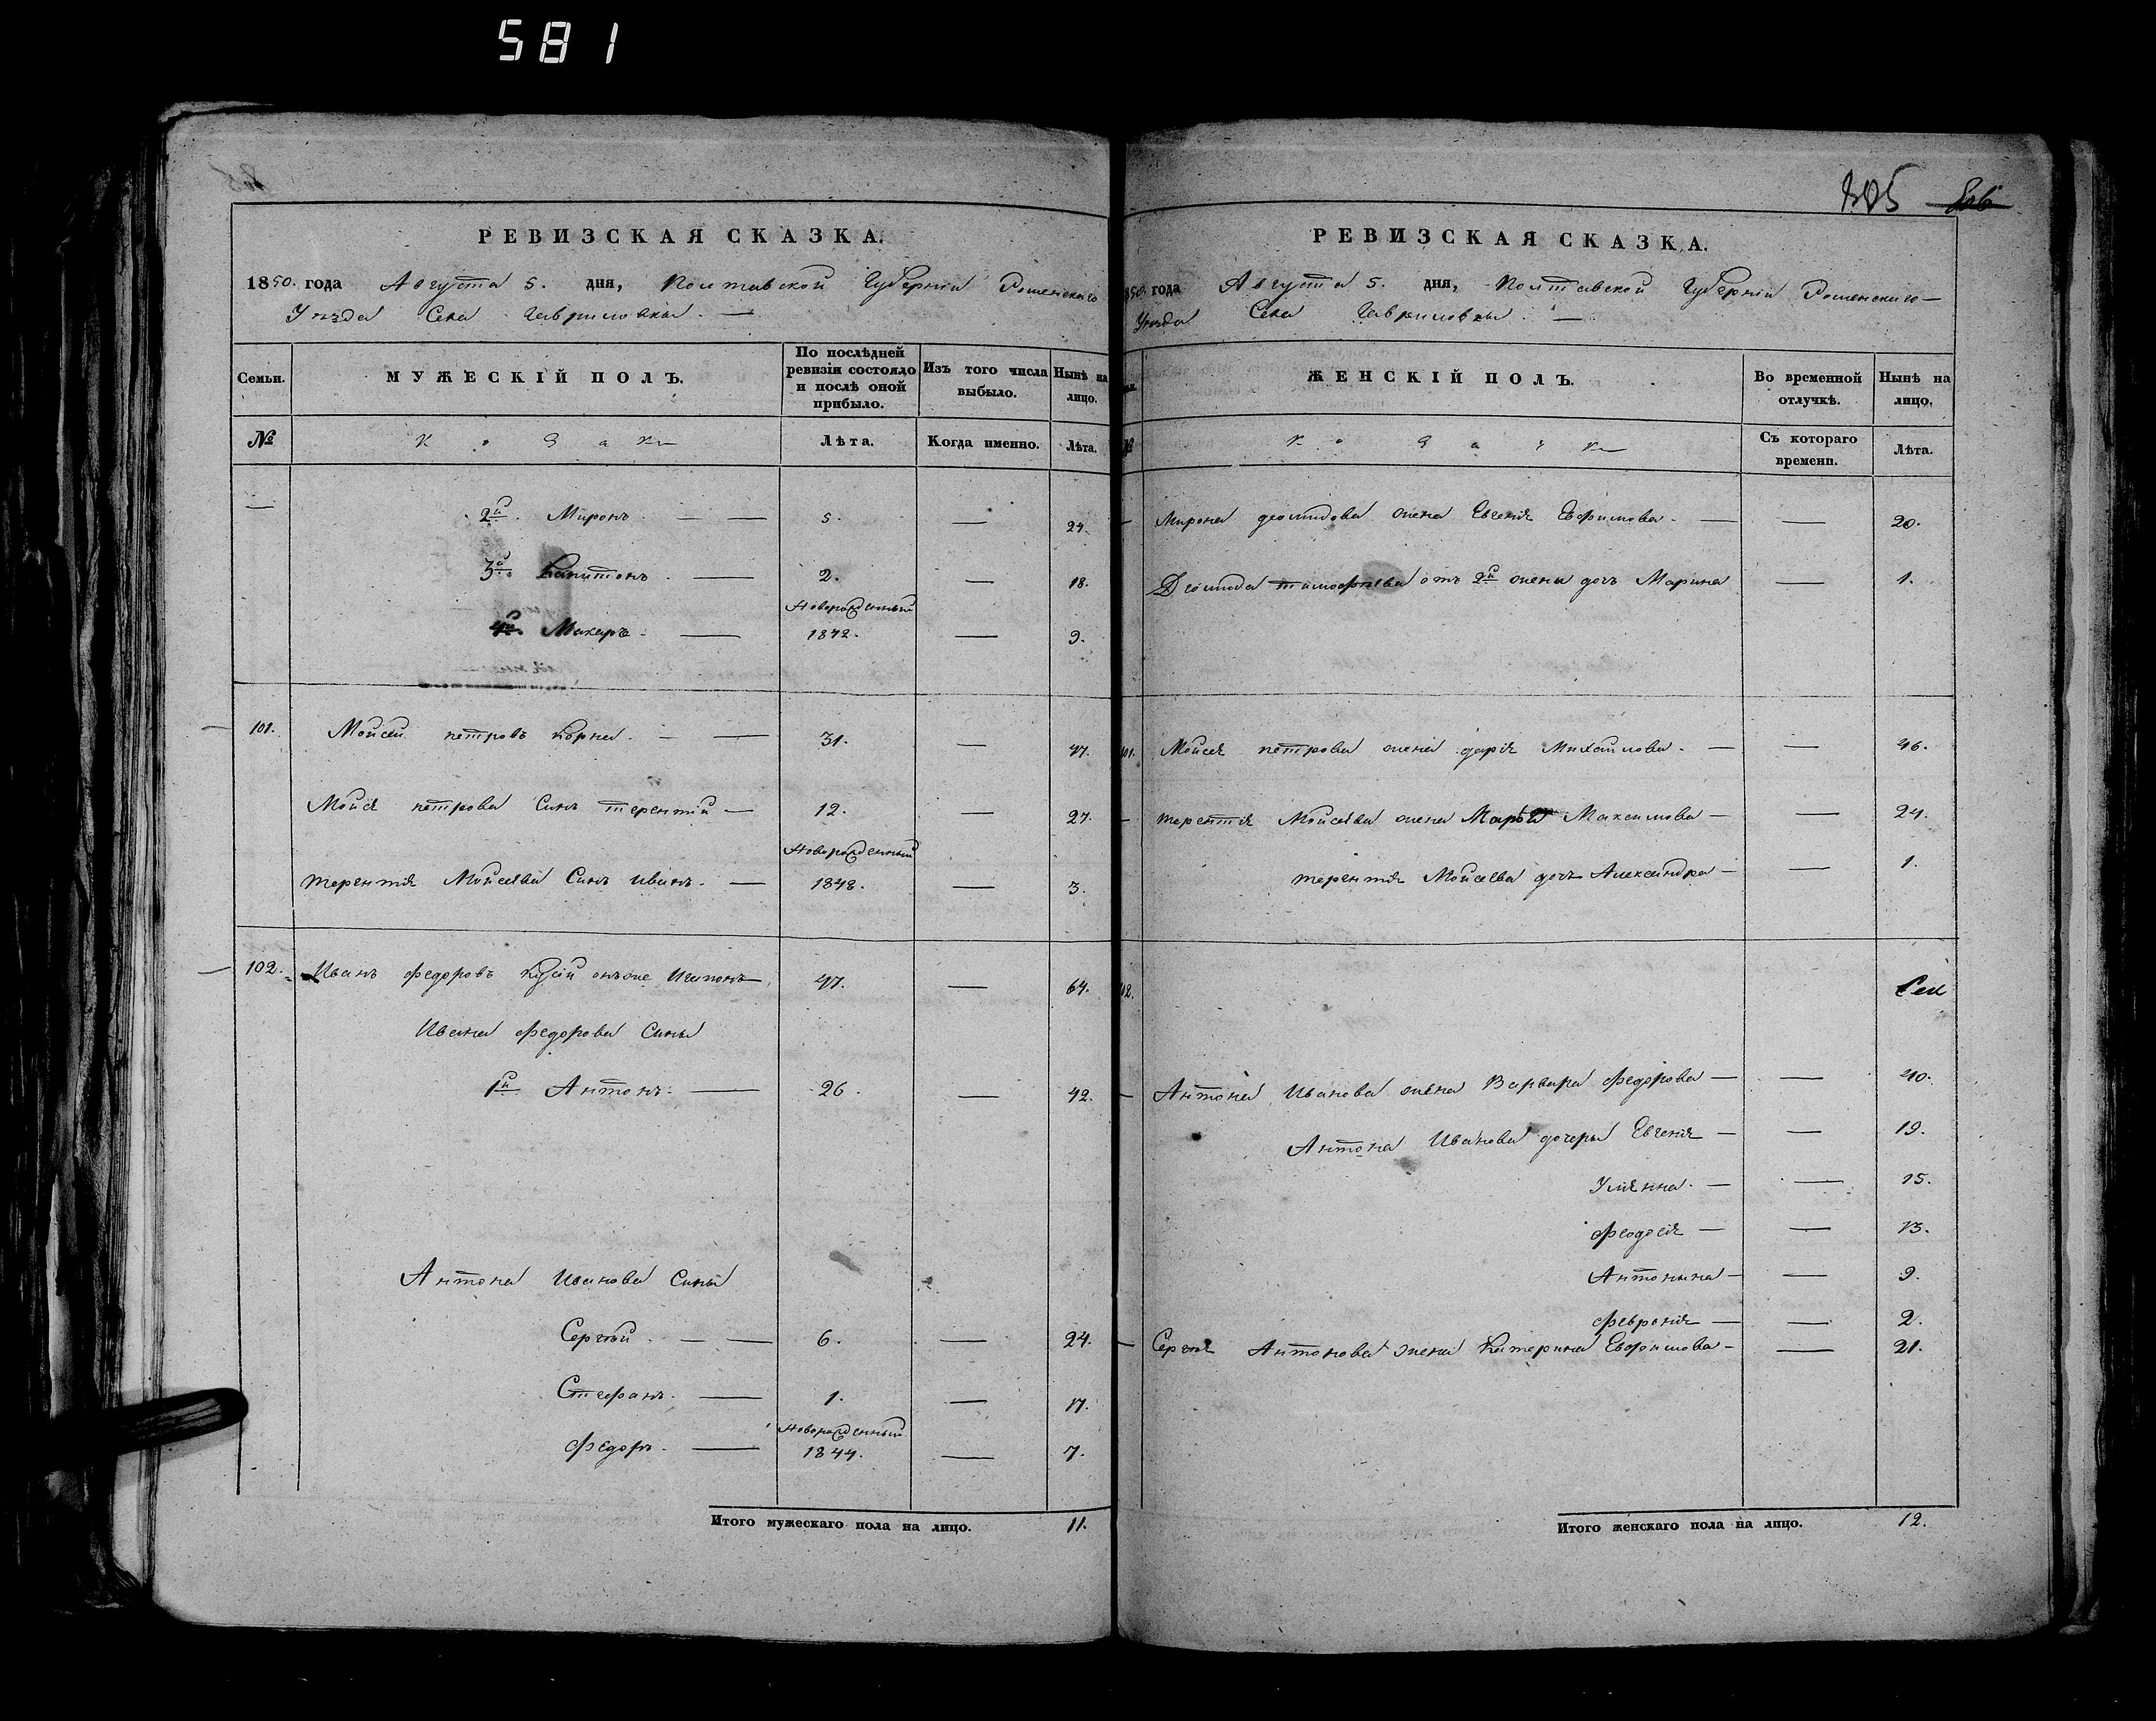 581
РЕВИЗСКАЯ СКАЗКА.
1850. года Августа 5. дня, Полтавской Губерніи Роменскаго
Уезда Села Гавриловки. —
Семьи. МУЖЕСКІЙ ПОЛЪ. По послѣдней ревизіи состояло и послѣ оной прибыло. Изъ того числа выбыло. Нынѣ на лицо.
№ Козаки Лѣта. Когда именно. Лѣта.
— 2й. Миронъ. — 5. — 24.
3й. Капитонъ. — 2. — 18.
Новорожденный
4й. Макаръ. — 1842. — 9.
101. Мойсей петровъ Корна. — 31. — 47.
Мойсея петрова Синъ терентій — 12. — 27.
Новорожденный
терентія Мойсеева Синъ иванъ. — 1848. — 3.
102. Иванъ федоровъ онъже — 47. — 64.
Ивана федорова Сины
1й Антонъ. — 26. — 42.
Антона Иванова Сины
Сергѣй. — 6. — 24.
Стефанъ. — 1. — 17.
Новорожденный
федоръ. — 1844. — 7.
Итого мужескаго пола на лицо. 11.
305
РЕВИЗСКАЯ СКАЗКА.
1850. года Августа 5. дня, Полтавской Губерніи Роменскаго —
Уезда Села Гавриловки. —
ЖЕНСКІЙ ПОЛЪ. Во временной отлучкѣ. Нынѣ на лицо.
№ Козачки Съ котораго времени. Лѣта.
— Мирона деомидова жена Евгенія Евфимова. — — 20.
Деомида тимофеева отъ 2й жены дочь Марина — 1.
101. Мойсея петрова жена дарія Михайлова. — — 46.
— терентія Мойсеева жена Марія Максимова — — 24.
терентія Мойсеева дочь Александра — — 1.
102.
— Антона Иванова жена Варвара федорова — — 40.
Антона Иванова дочеры Евгенія — — 19.
Уліянна. — — 15.
феодосія — — 13.
Антонина — — 9.
феврония — — 2.
— Сергѣя Антонова жена Катерина Евфимова — — 21.
Итого женскаго пола на лицо. 12.